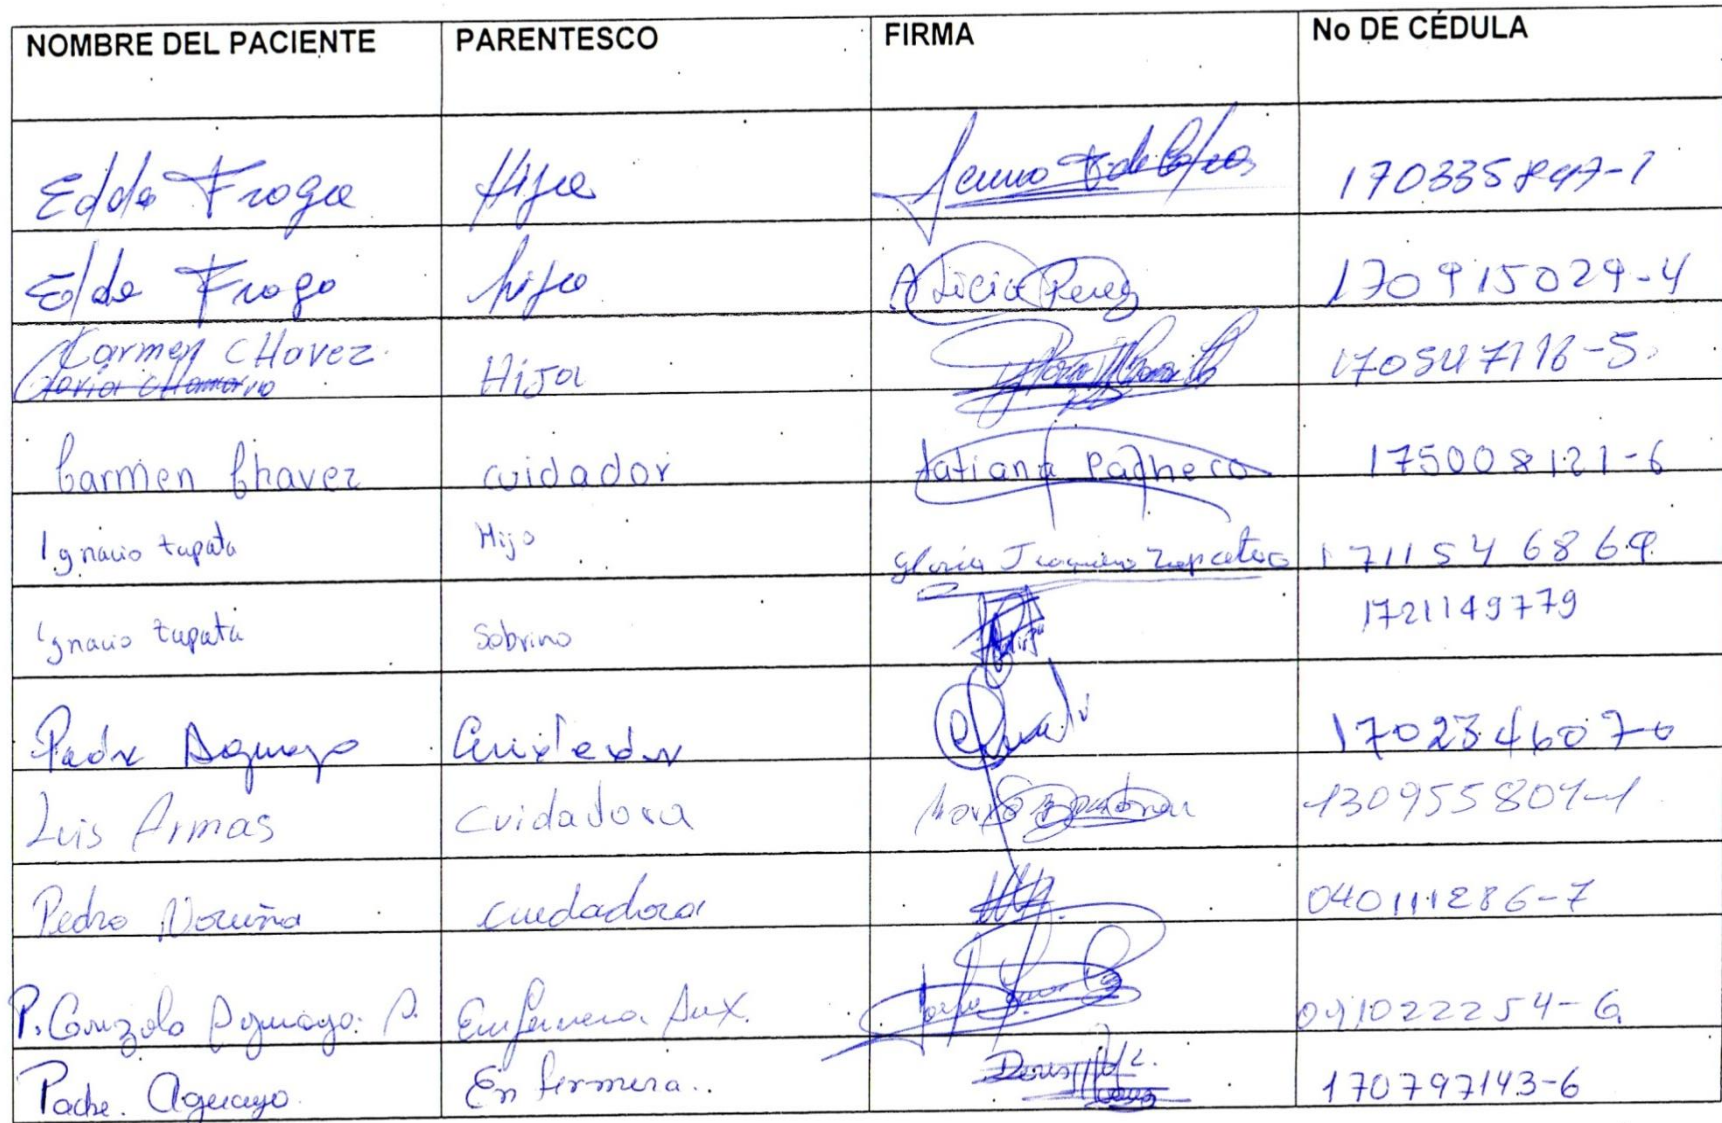 NOMBRE DEL PACIENTE PARENTESCO FIRMA No DE CÉDULA
Edda Fraga Hija 170335847-1
Elda Fraga hija Alicia Perez 170915029-4
Carmen CHavez Hija 170547116-5
Carmen Chavez cuidador tatiana Pacheco 175008121-6
Ignacio Zapata Hijo Gloria 1711546869
Ignacio Zapata Sobrino 1721149779
Padre Aguayo Cuidador 170234607-0
Luis Armas Cuidadora 130955801-1
Pedro cuedadora 040111286-7
P. Gonzalo Aguayo. A. Enfermera Aux. 091022254-6
Padre. Aguayo. Enfermera.. 170797143-6